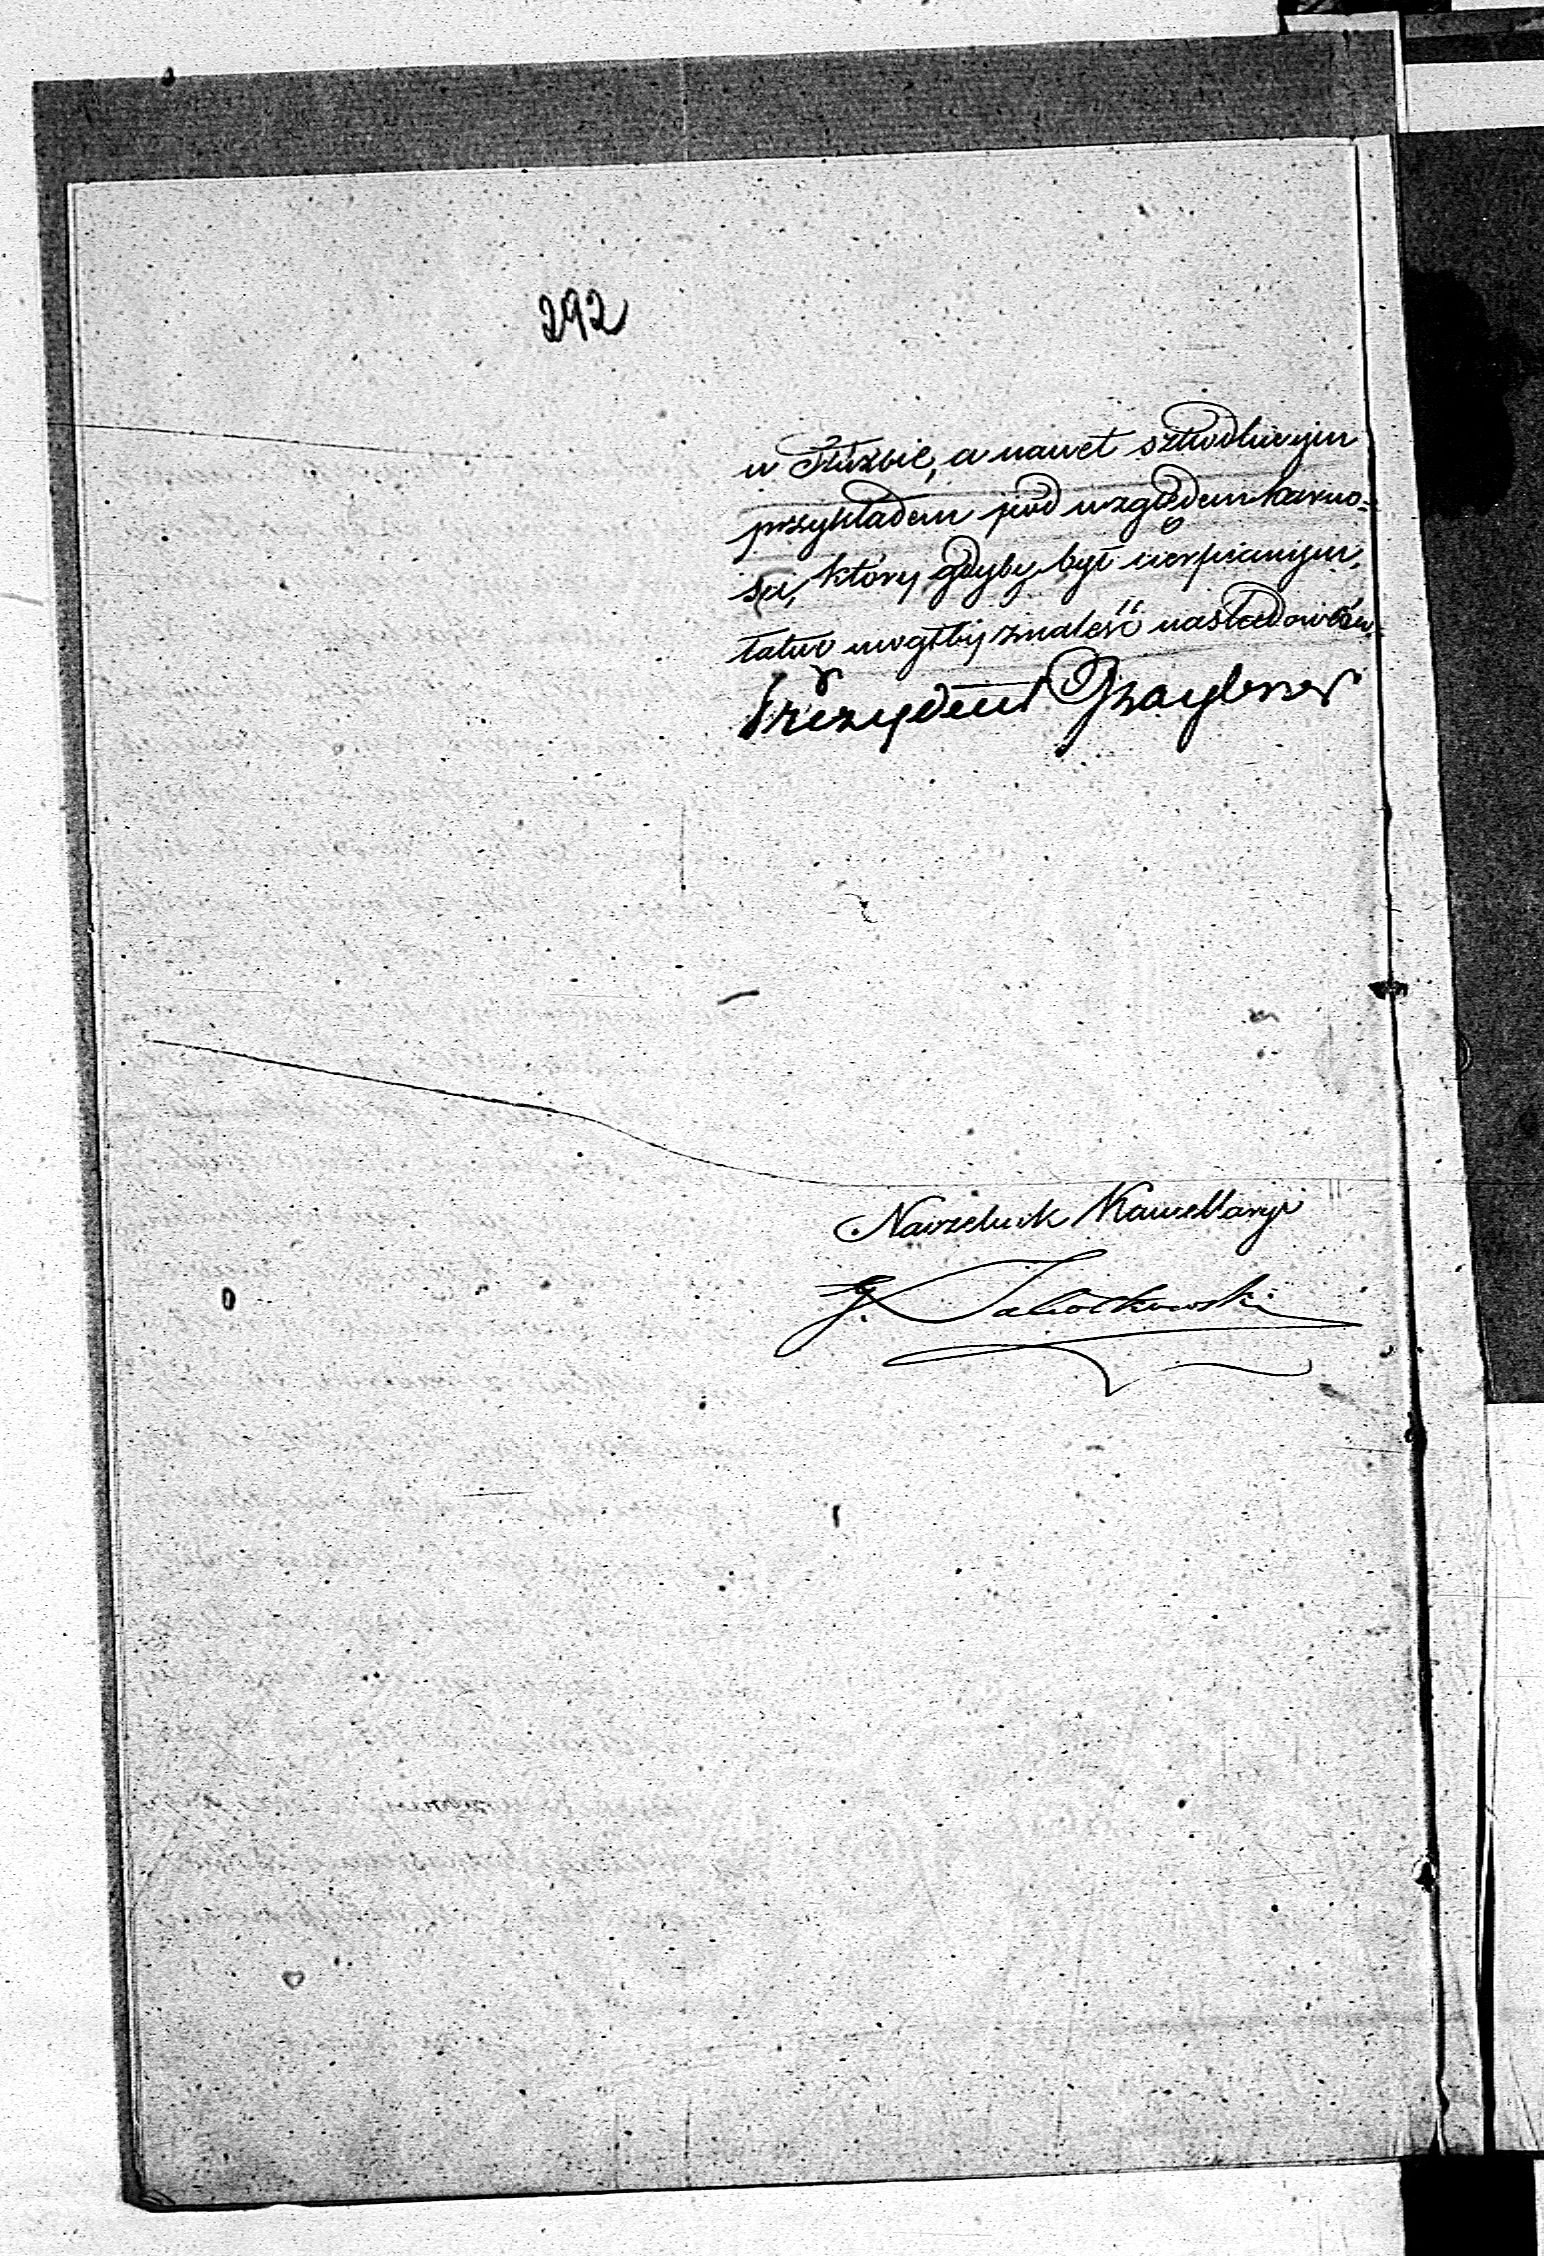 292
w Służbie, a nawet szkodliwym
przykładem pod względem karno=
ści, który gdyby był cierpianym,
łatwo mogłby znaleść naśladowców.
Prezydent
Naczelnik Kancellaryi
J.